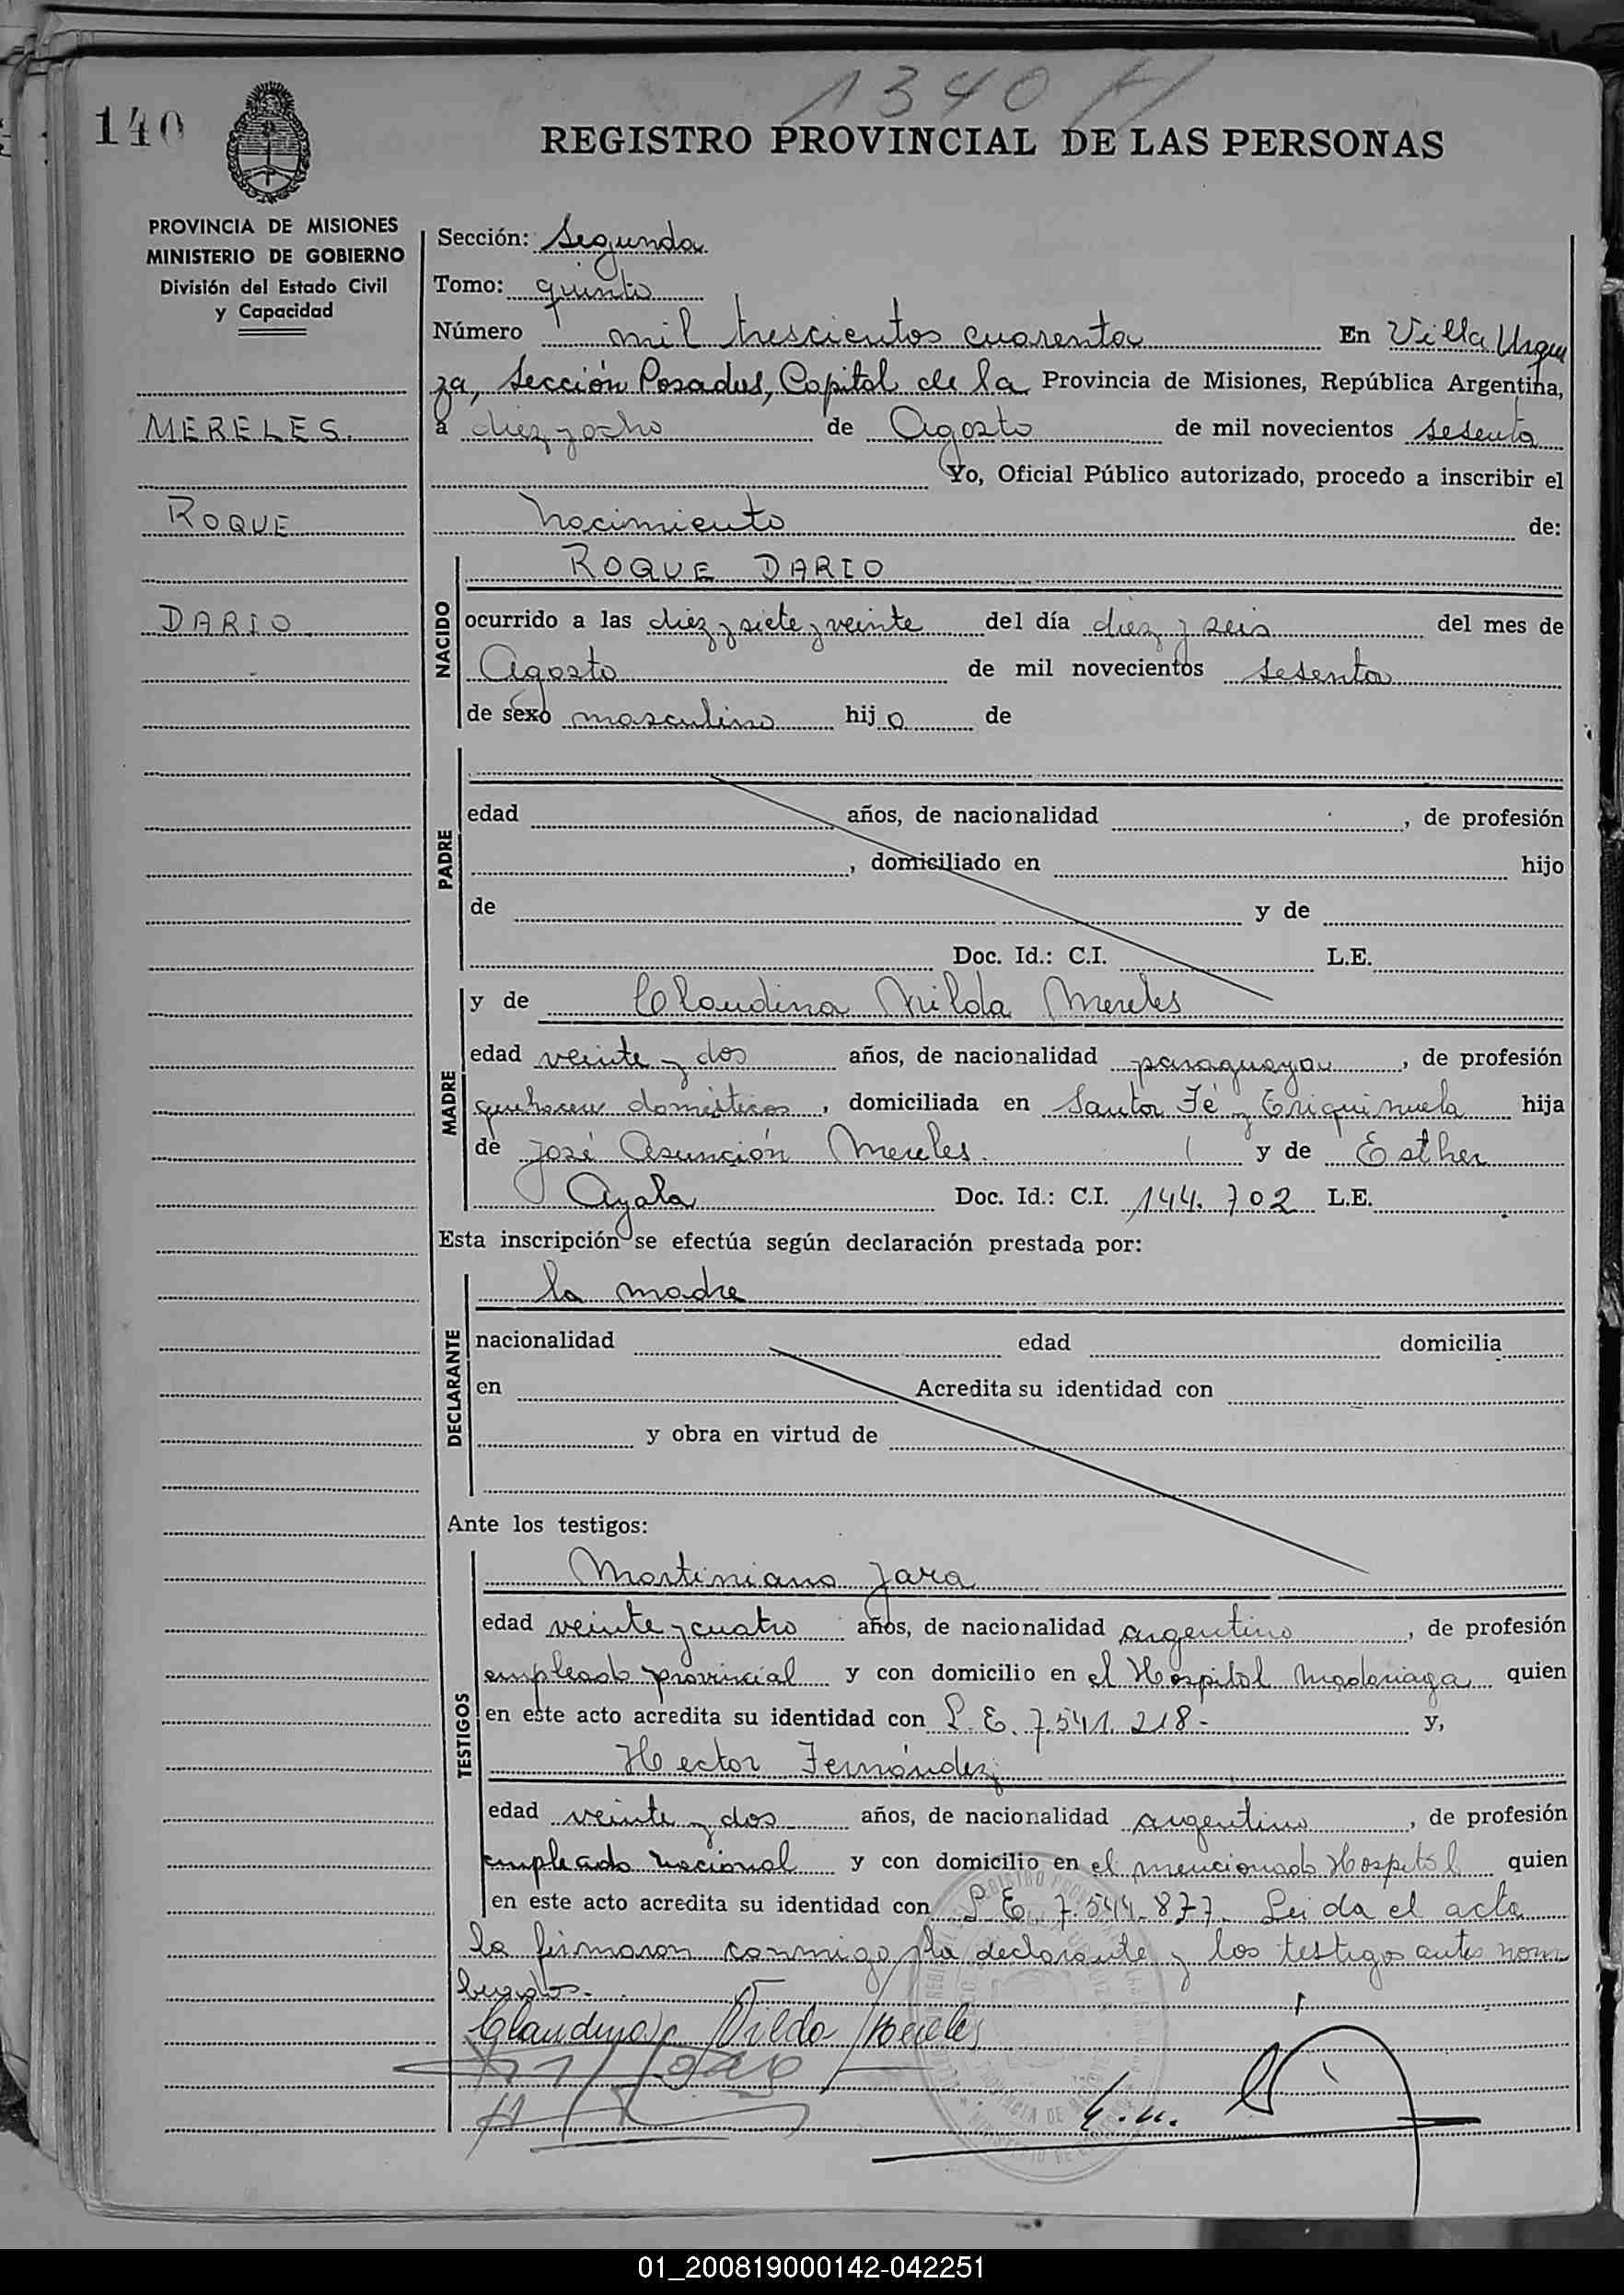 1340 H
140
REGISTRO PROVINCIAL DE LAS PERSONAS
PROVINCIA DE MISIONES
MINISTERIO DE GOBIERNO
División del Estado Civil
y Capacidad
MERELES.
ROQUE
DARIO
Sección: Segunda
Tomo: quinto
Número mil trescientos cuarenta En Villa Urqui
za, Sección Posadas, Capital de la Provincia de Misiones, República Argentina,
a diez y ocho de Agosto de mil novecientos sesenta
Yo, Oficial Público autorizado, procedo a inscribir el
nacimiento de:
NACIDO
ROQUE DARIO
ocurrido a las diez y siete y veinte del día diez y seis del mes de
Agosto de mil novecientos sesenta
de sexo masculino hijo de
PADRE
edad años, de nacionalidad , de profesión
, domiciliado en hijo
de y de
Doc. Id.: C.I. L.E.
MADRE
y de Claudina Nilda Mereles
edad veinte y dos años, de nacionalidad paraguaya , de profesión
quehacer domésticos , domiciliada en Santa Fé y hija
de José Asunción Mereles y de Esther
Ayala Doc. Id.: C.I. 144.702 L.E.
Esta inscripción se efectúa según declaración prestada por:
DECLARANTE
la madre
nacionalidad edad domicilia
en Acredita su identidad con
y obra en virtud de
Ante los testigos:
TESTIGOS
Martiniano Jara
edad veinte y cuatro años, de nacionalidad argentino , de profesión
empleado provincial y con domicilio en el Hospital Madariaga quien
en este acto acredita su identidad con L.E. 7.541.218- y,
Hector Fernández
edad veinte y dos años, de nacionalidad argentino , de profesión
empleado nacional y con domicilio en el mencionado Hospital quien
en este acto acredita su identidad con L.E. 7.544.877. Leida el acta
la firmaron conmigo la declarante y los testigos antes nom
brados.
Claudina Nilda Mereles
01_200819000142-042251